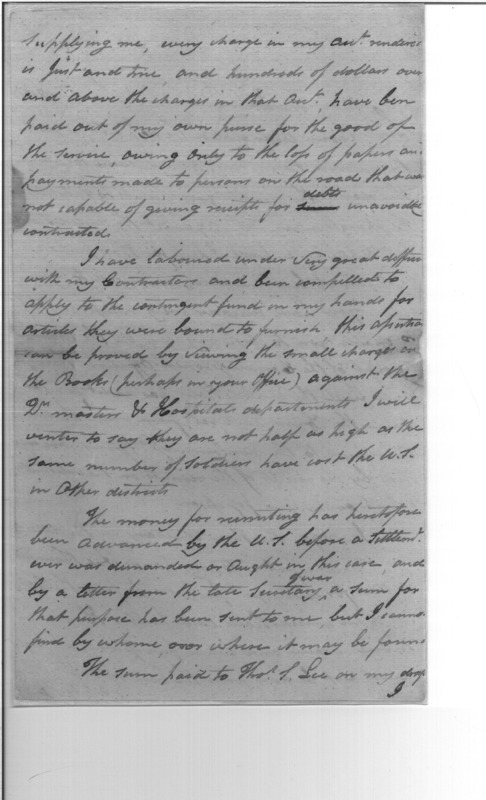 supplying me, every charge in my act. rendered
is Just and true, and hundreds of dollars over
and above the charges in that Act. have ben
paid out of my own purse for the good of
the service owing only to the loss of papers an
payments made to persons on the road that was
not capable of giving receipts for debts unavoidbl
contracted.
I have laboured under very great difficu
with my Contractors and been compelled to
apply to the contingent fund in my hands for
articles they were bound to furnish this asertio
can be proved by viewing the small charges on
the Books (perhaps in your Office) against the
Qr. masters & Hospitals departments I will
venter to say they are not half as high as the
same number of soldiers have cost the U.S.
in Other districts
The money for recruiting has heretofore
been advanced by the U.S. before a settlemt.
ever was demanded or aught in this case, and
by a letter from the late Secretary of war, a sum for
that purpose has been sent to me but I canno
find by whome, or where it may be foun
The sum paid to Thos. S. Lee on my
I